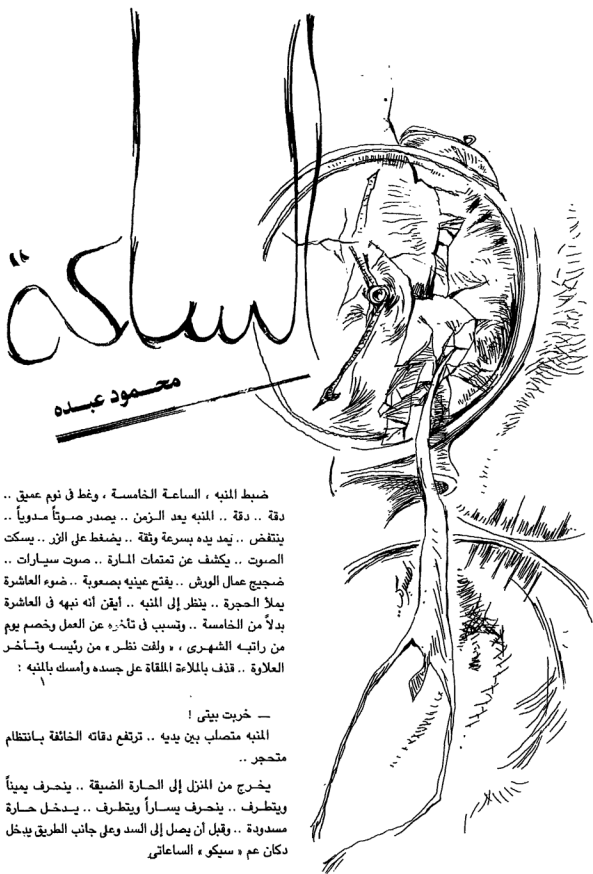 الساكتة
محمود عبده
ضبط المنبه ، الساعة الخامسة ، وغط فى نوم عميق ..
دقة .. دقة .. المنبه يعد الزمن .. يصدر صوتاً مدوياً ..
ينتفض .. يمد يده بسرعة وثقة .. يضغط على الزر .. يسكت
الصوت .. يكشف عن تمتمات المارة .. صوت سيارات ..
ضجيج عمال الورش .. يفتح عينيه بصعوبة .. ضوء العاشرة
يملأ الحجرة .. ينظر إلى المنبه .. أيقن أنه نبهه فى العاشرة
بدلاً من الخامسة .. وتسبب فى تأخره عن العمل وخصم يوم
من راتبه الشهرى ، « ولفت نظر » من رئيسه وتأخر
العلاوة .. قذف بالملاءة الملقاة على جسده وأمسك بالمنبه :
— خربت بيتى !
المنبه متصلب بين يديه .. ترتفع دقاته الخائفة بانتظام
متحجر ..
يخرج من المنزل إلى الحارة الضيقة .. ينحرف يميناً
ويتطرف .. ينحرف يساراً ويتطرف .. يدخل حارة
مسدودة .. وقبل أن يصل إلى السد وعلى جانب الطريق يدخل
دكان عم « سيكو » الساعاتى